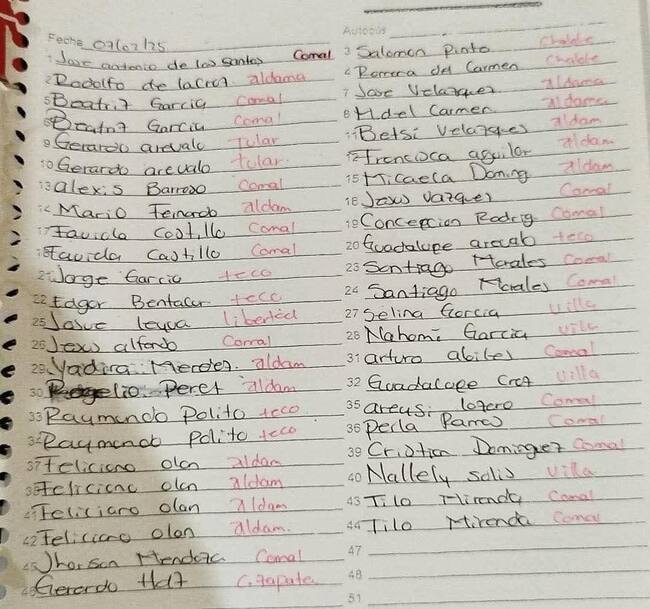 Fecha 07/02/25
Autobús
1 Jose antonio de los santos Comal
2 Rodolfo de la Cruz aldama
5 Beatriz Garcia Comal
6 Beatriz Garcia Comal
9 Gerardo arevalo tular
10 Gerardo arevalo tular.
13 alexis Barroso Comal
14 Mario Fernando aldam
17 Faviola Castillo Comal
18 Faviola Castillo Comal
21 Jorge Garcia teco
22 Edgar Bentacur teco
25 Josue leyva libertad
26 Jesus alfonso Comal
29 Yadira Mendez. aldam
30 Rogelio Perez aldam
33 Raymundo Polito teco
34 Raymundo Polito teco
37 Feliciano olan aldam
38 Feliciano olan aldam
41 Feliciano olan aldam
42 Feliciano olan aldam.
45 Jhorson Mendoza Comal
46 Gerardo C. zapata
3 Salomon Pinto Chable
4 Romera del Carmen Chable
7 Jose Velazquez aldama
8 M del Carmen aldama
11 Betsi Velazques aldam
12 Francisca aguilar aldam
15 Micaela Doming aldam
16 Jesus Vazquez Comal
19 Concepcion Rodrig Comal
20 Guadalupe arevalo teco
23 Santiago Morales Comal
24 Santiago Morales Comal
27 Selina Garcia Villa
28 Nahomi Garcia Villa
31 arturo Comal
32 Guadalupe Cruz Villa
35 Comal
36 Perla Ramos Comal
39 Cristian Dominguez Comal
40 Nallely solis Villa
43 Tilo Miranda Comal
44 Tilo Miranda Comal
47
48
51